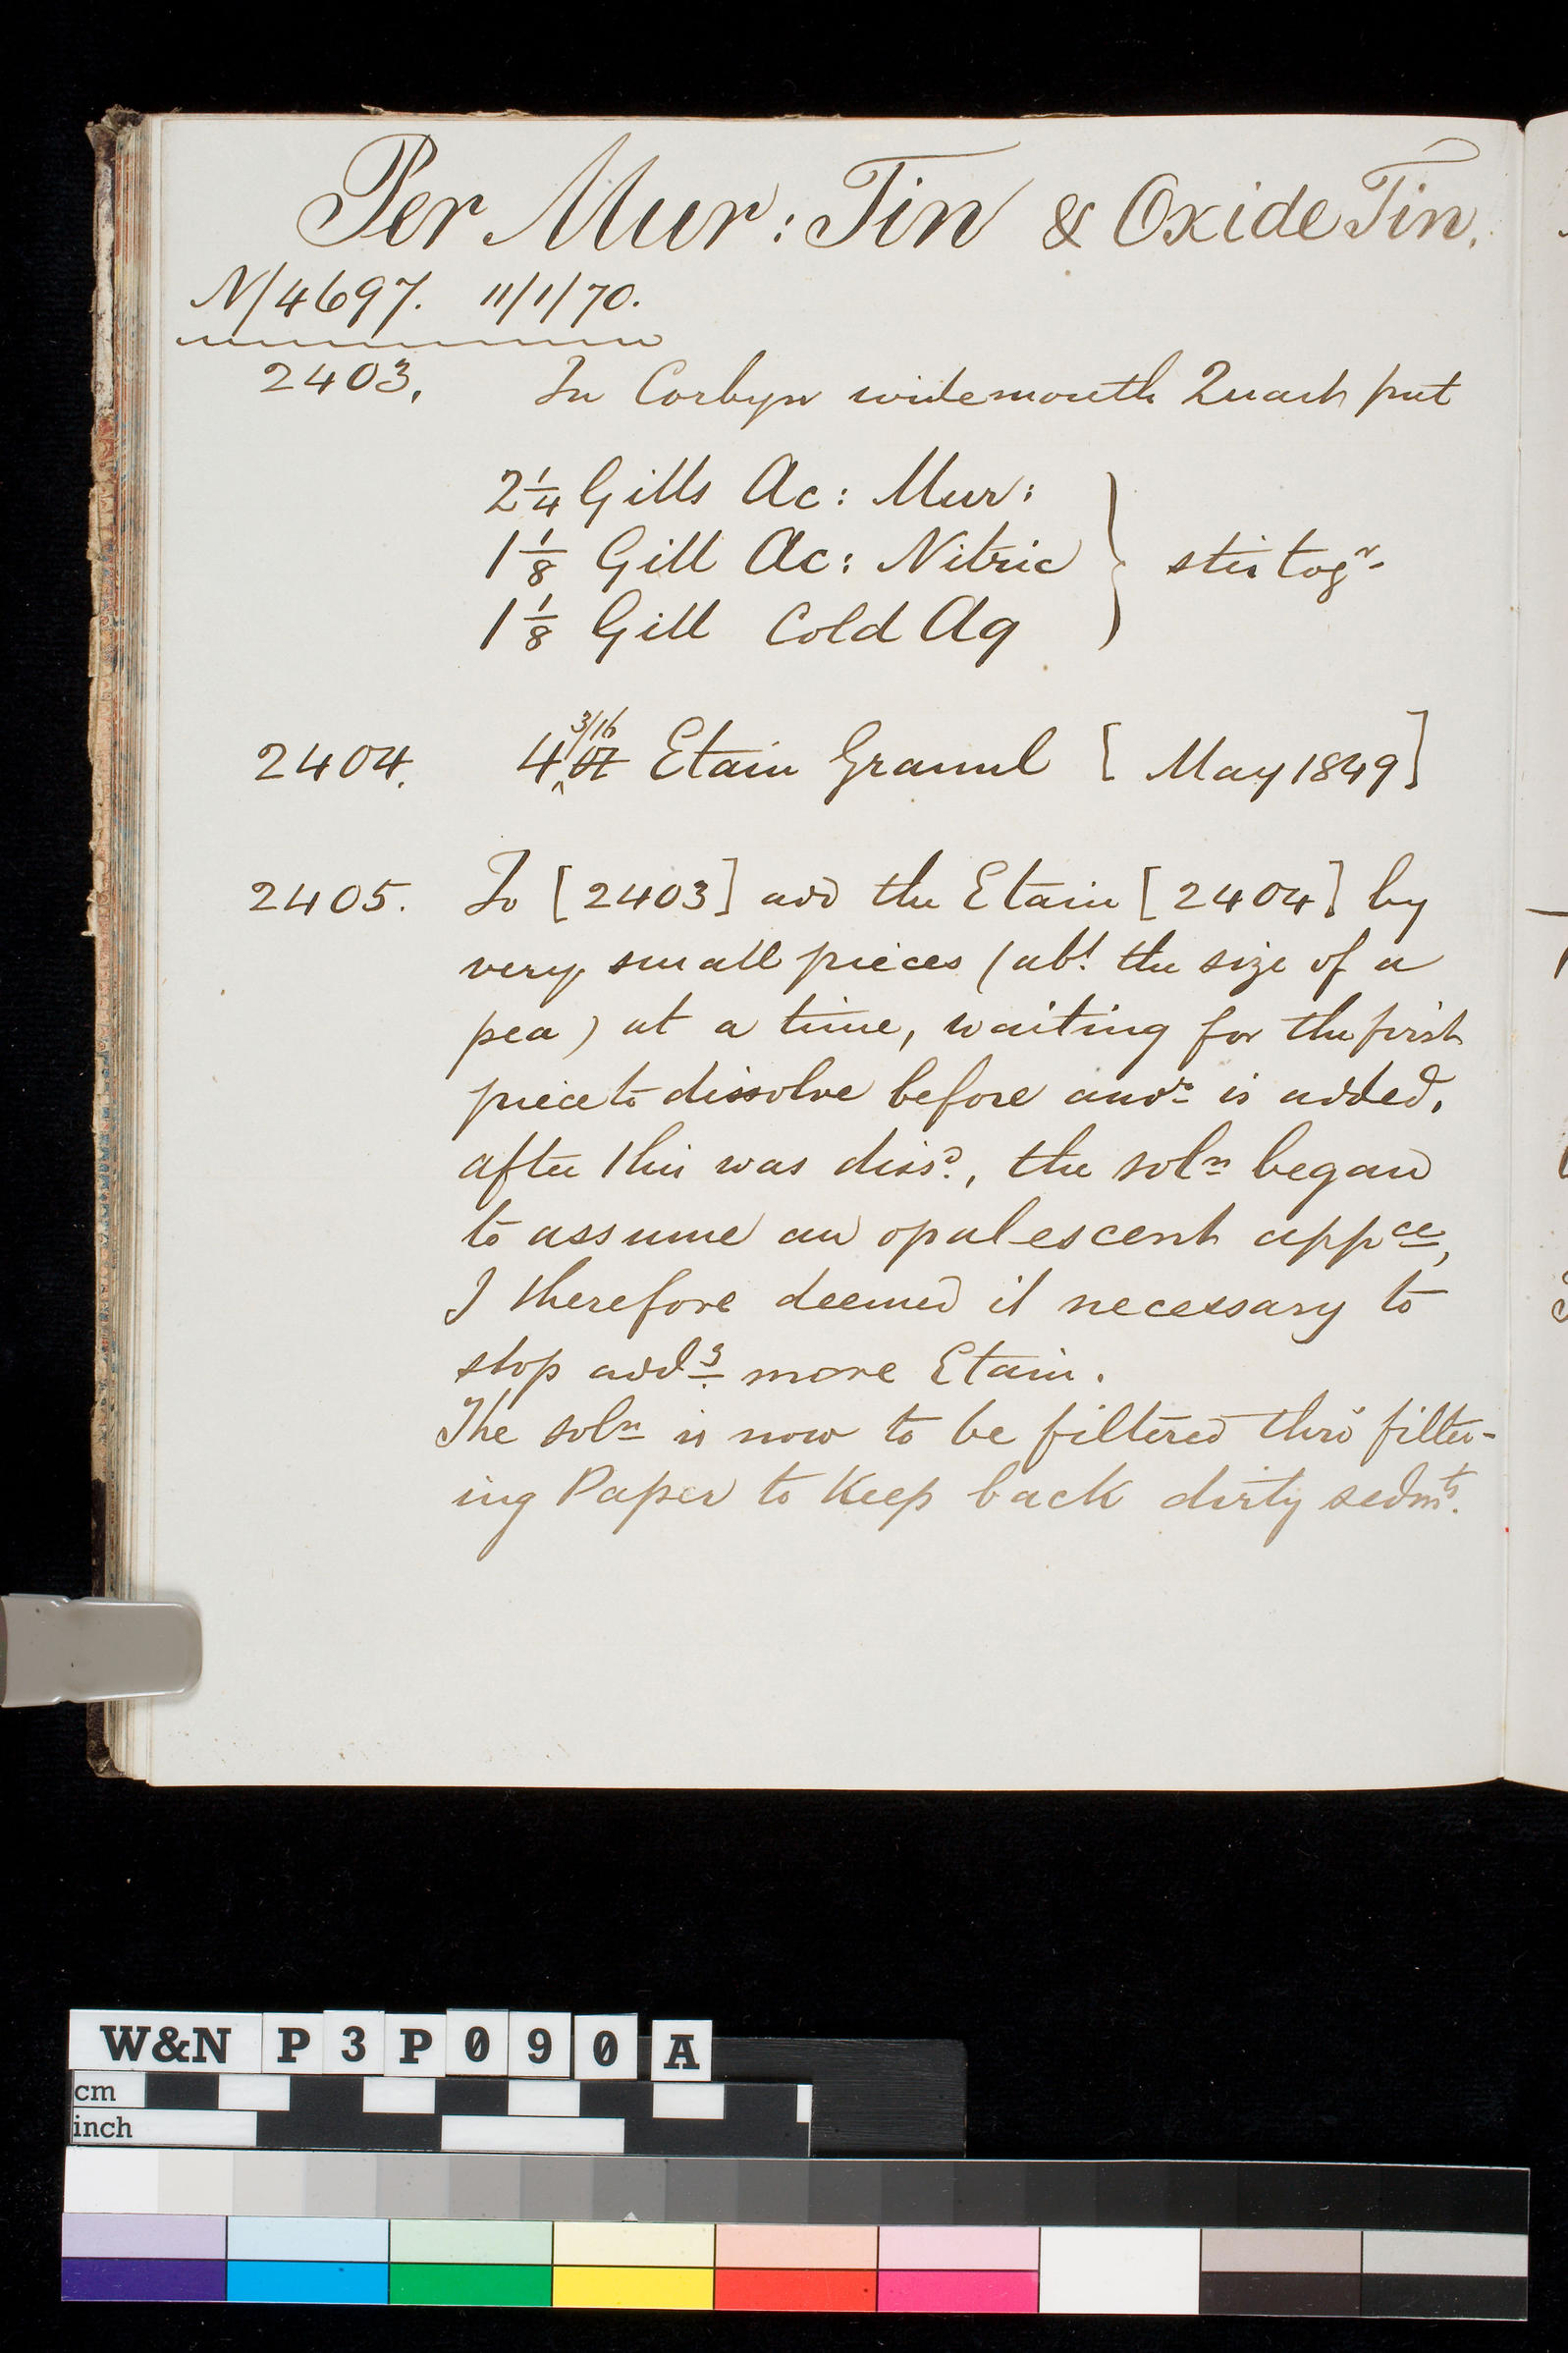 Per Mur: Tin & Oxide Tin.
N/4697. 11/1/70.
2403. In Corbyn widemouth Quart put
2 1/4 Gills Ac: Mur:
1 1/8 Gill Ac: Nitric } stir togr
1 1/8 Gill Cold Aq
2404. 4 3/16 oz Etain Granul [May 1849]
2405. To [2403] add the Etain [2404] by
very small pieces (abt the size of a
pea) at a time, waiting for the first
piece to dissolve before anor is added,
after this was dissd., the soln began
to assume an opalescent appce,
I therefore deemed it necessary to
stop addg more Etain.
The soln is now to be filtered thro' filter-
ing Paper to Keep back dirty sedmts.
W&N P3P090A
cm
inch